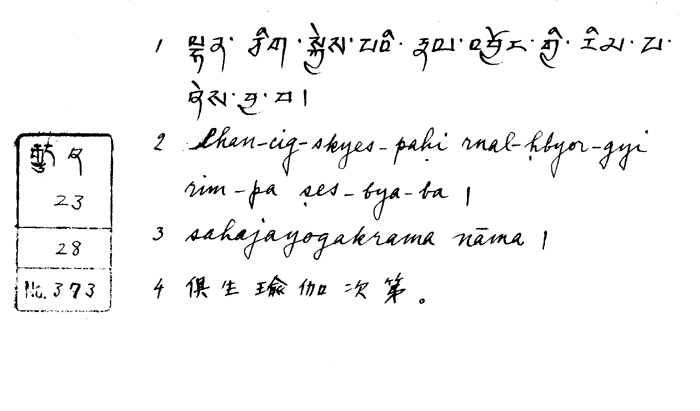 23
28
No. 373
1 ལྷན་ཅིག་སྐྱེས་པའི་རྣལ་འབྱོར་གྱི་རིམ་པ་
ཞེས་བྱ་བ།
2 lhan-cig-skyes-paḥi rnal-ḥbyor-gyi
rim-pa ṣes-bya-ba |
3 sahajayogakrama nāma |
4 倶生瑜伽次第。